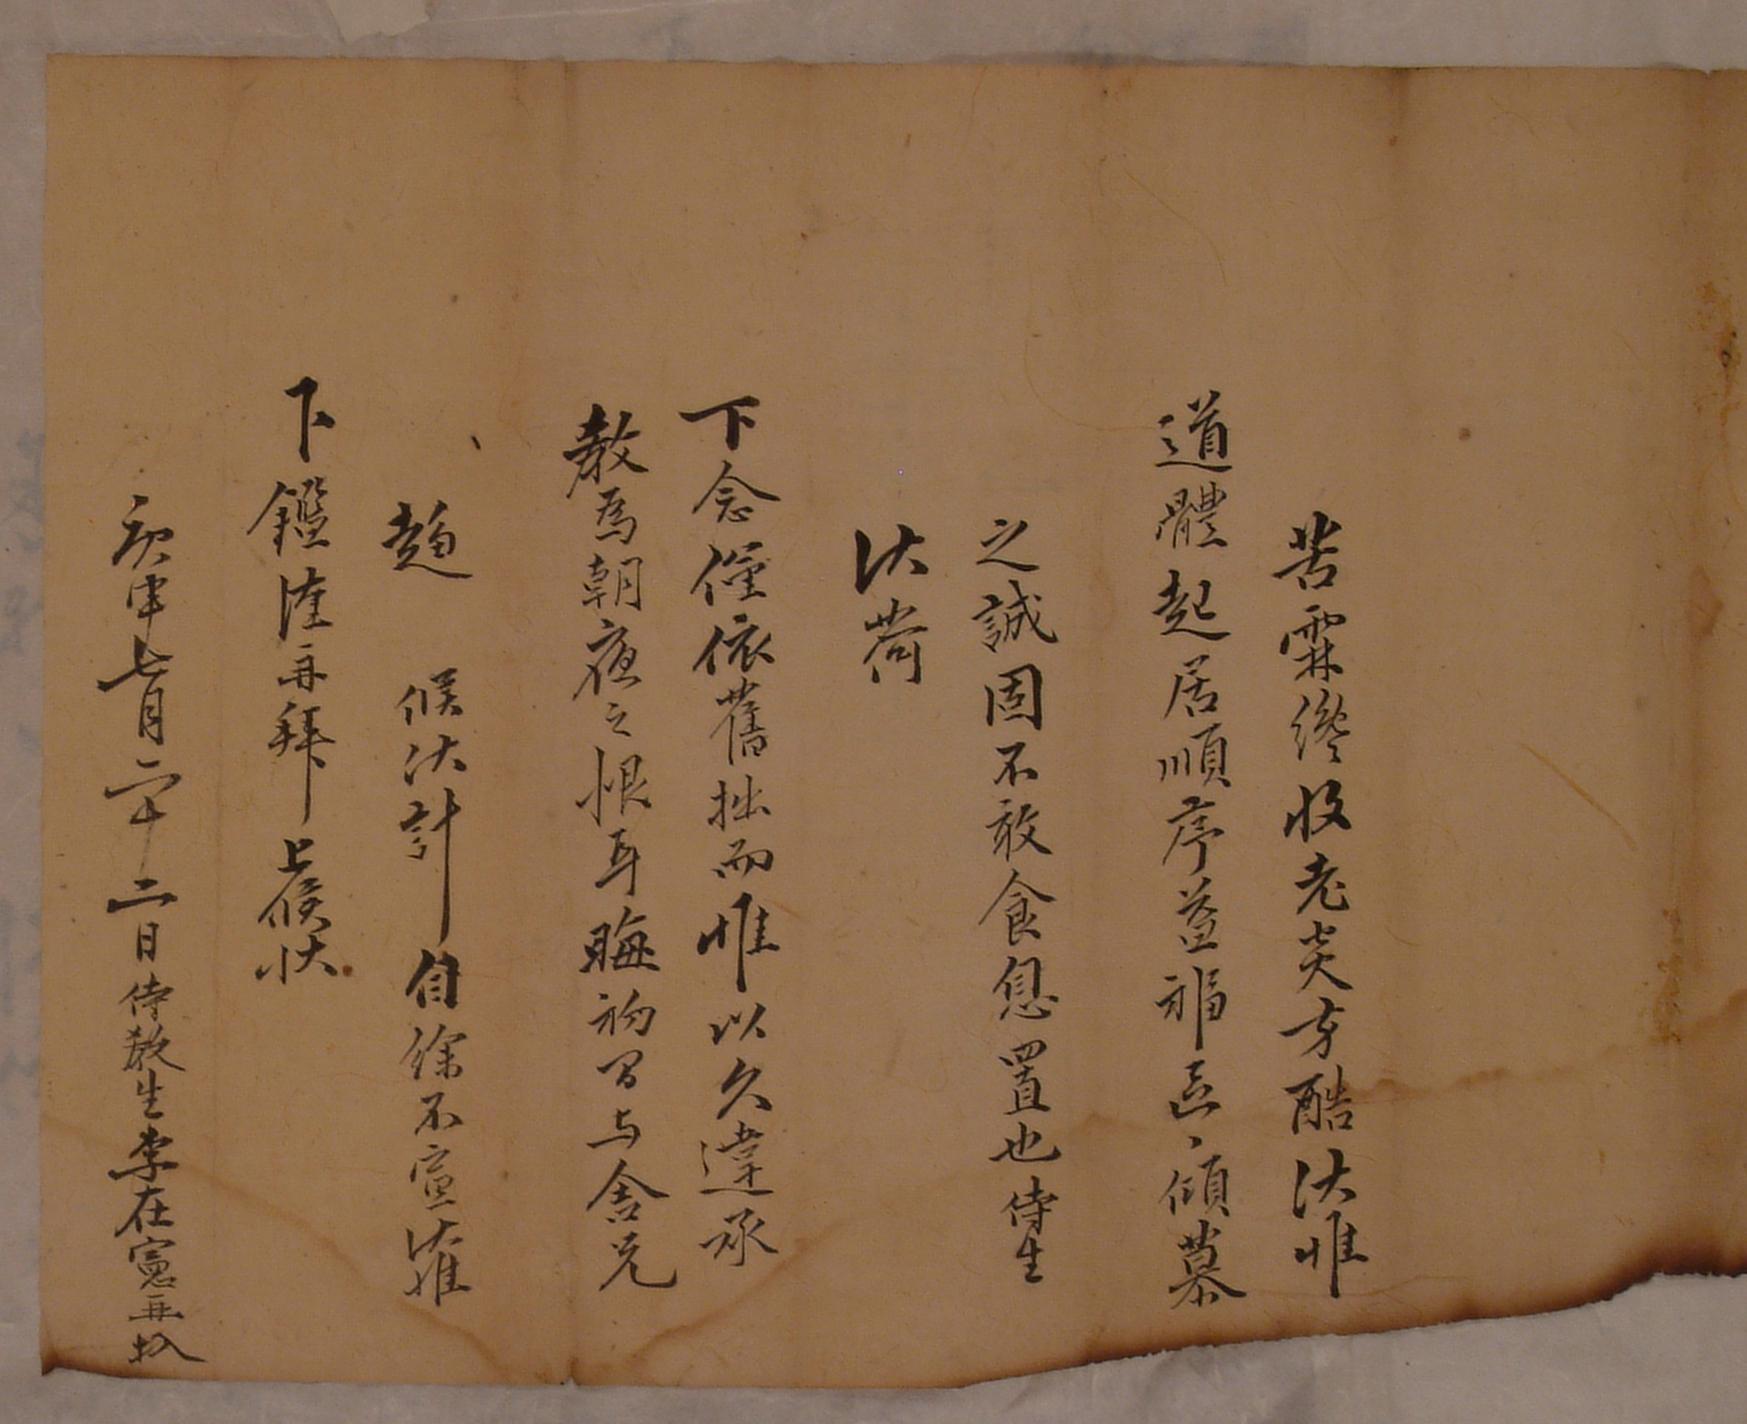 苦霖纔收老炎方酷伏惟
道體起居順序益福區〻傾慕
之誠固不敢食息置也侍生
伏荷
下念僅依舊拙而惟以久違承
敎爲朝夜之恨耳晦初間与舍兄
趨 候伏計 自餘不宣伏惟
下鑑謹再拜上候狀
庚申七月二十二日侍敎生李在憲再拜